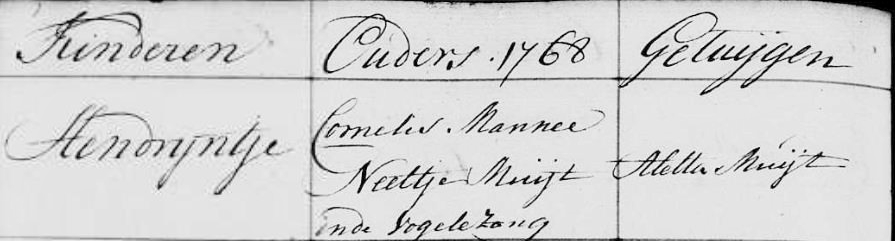 Kinderen Ouders. 1768 Getuijgen
Hendryntje
Cornelis. Mannee
Neeltje Muijt
inde Vogelezang
Aletta Muijt